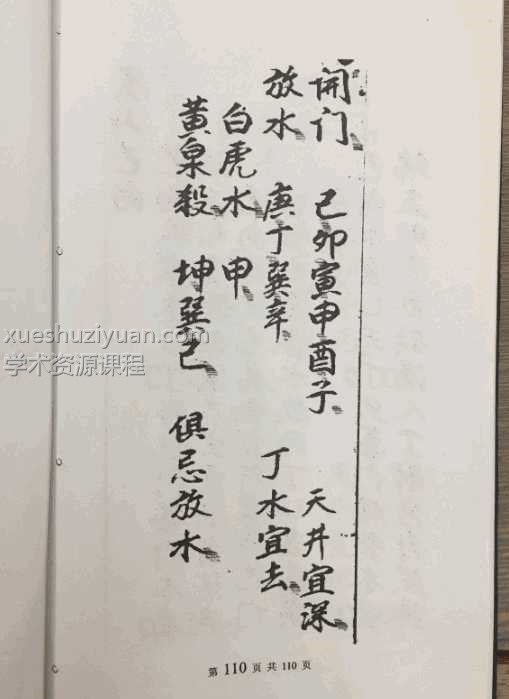 开门 己卯寅申酉子 天井宜深
放水 庚丁巽辛 丁水宜去
白虎水 申
黄泉殺 坤巽己 俱忌放水
xueshuziyuan.com
学术资源课程
第 110 页 共 110 页